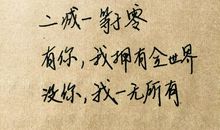 二减一等于零
有你，我拥有全世界
没你，我一无所有